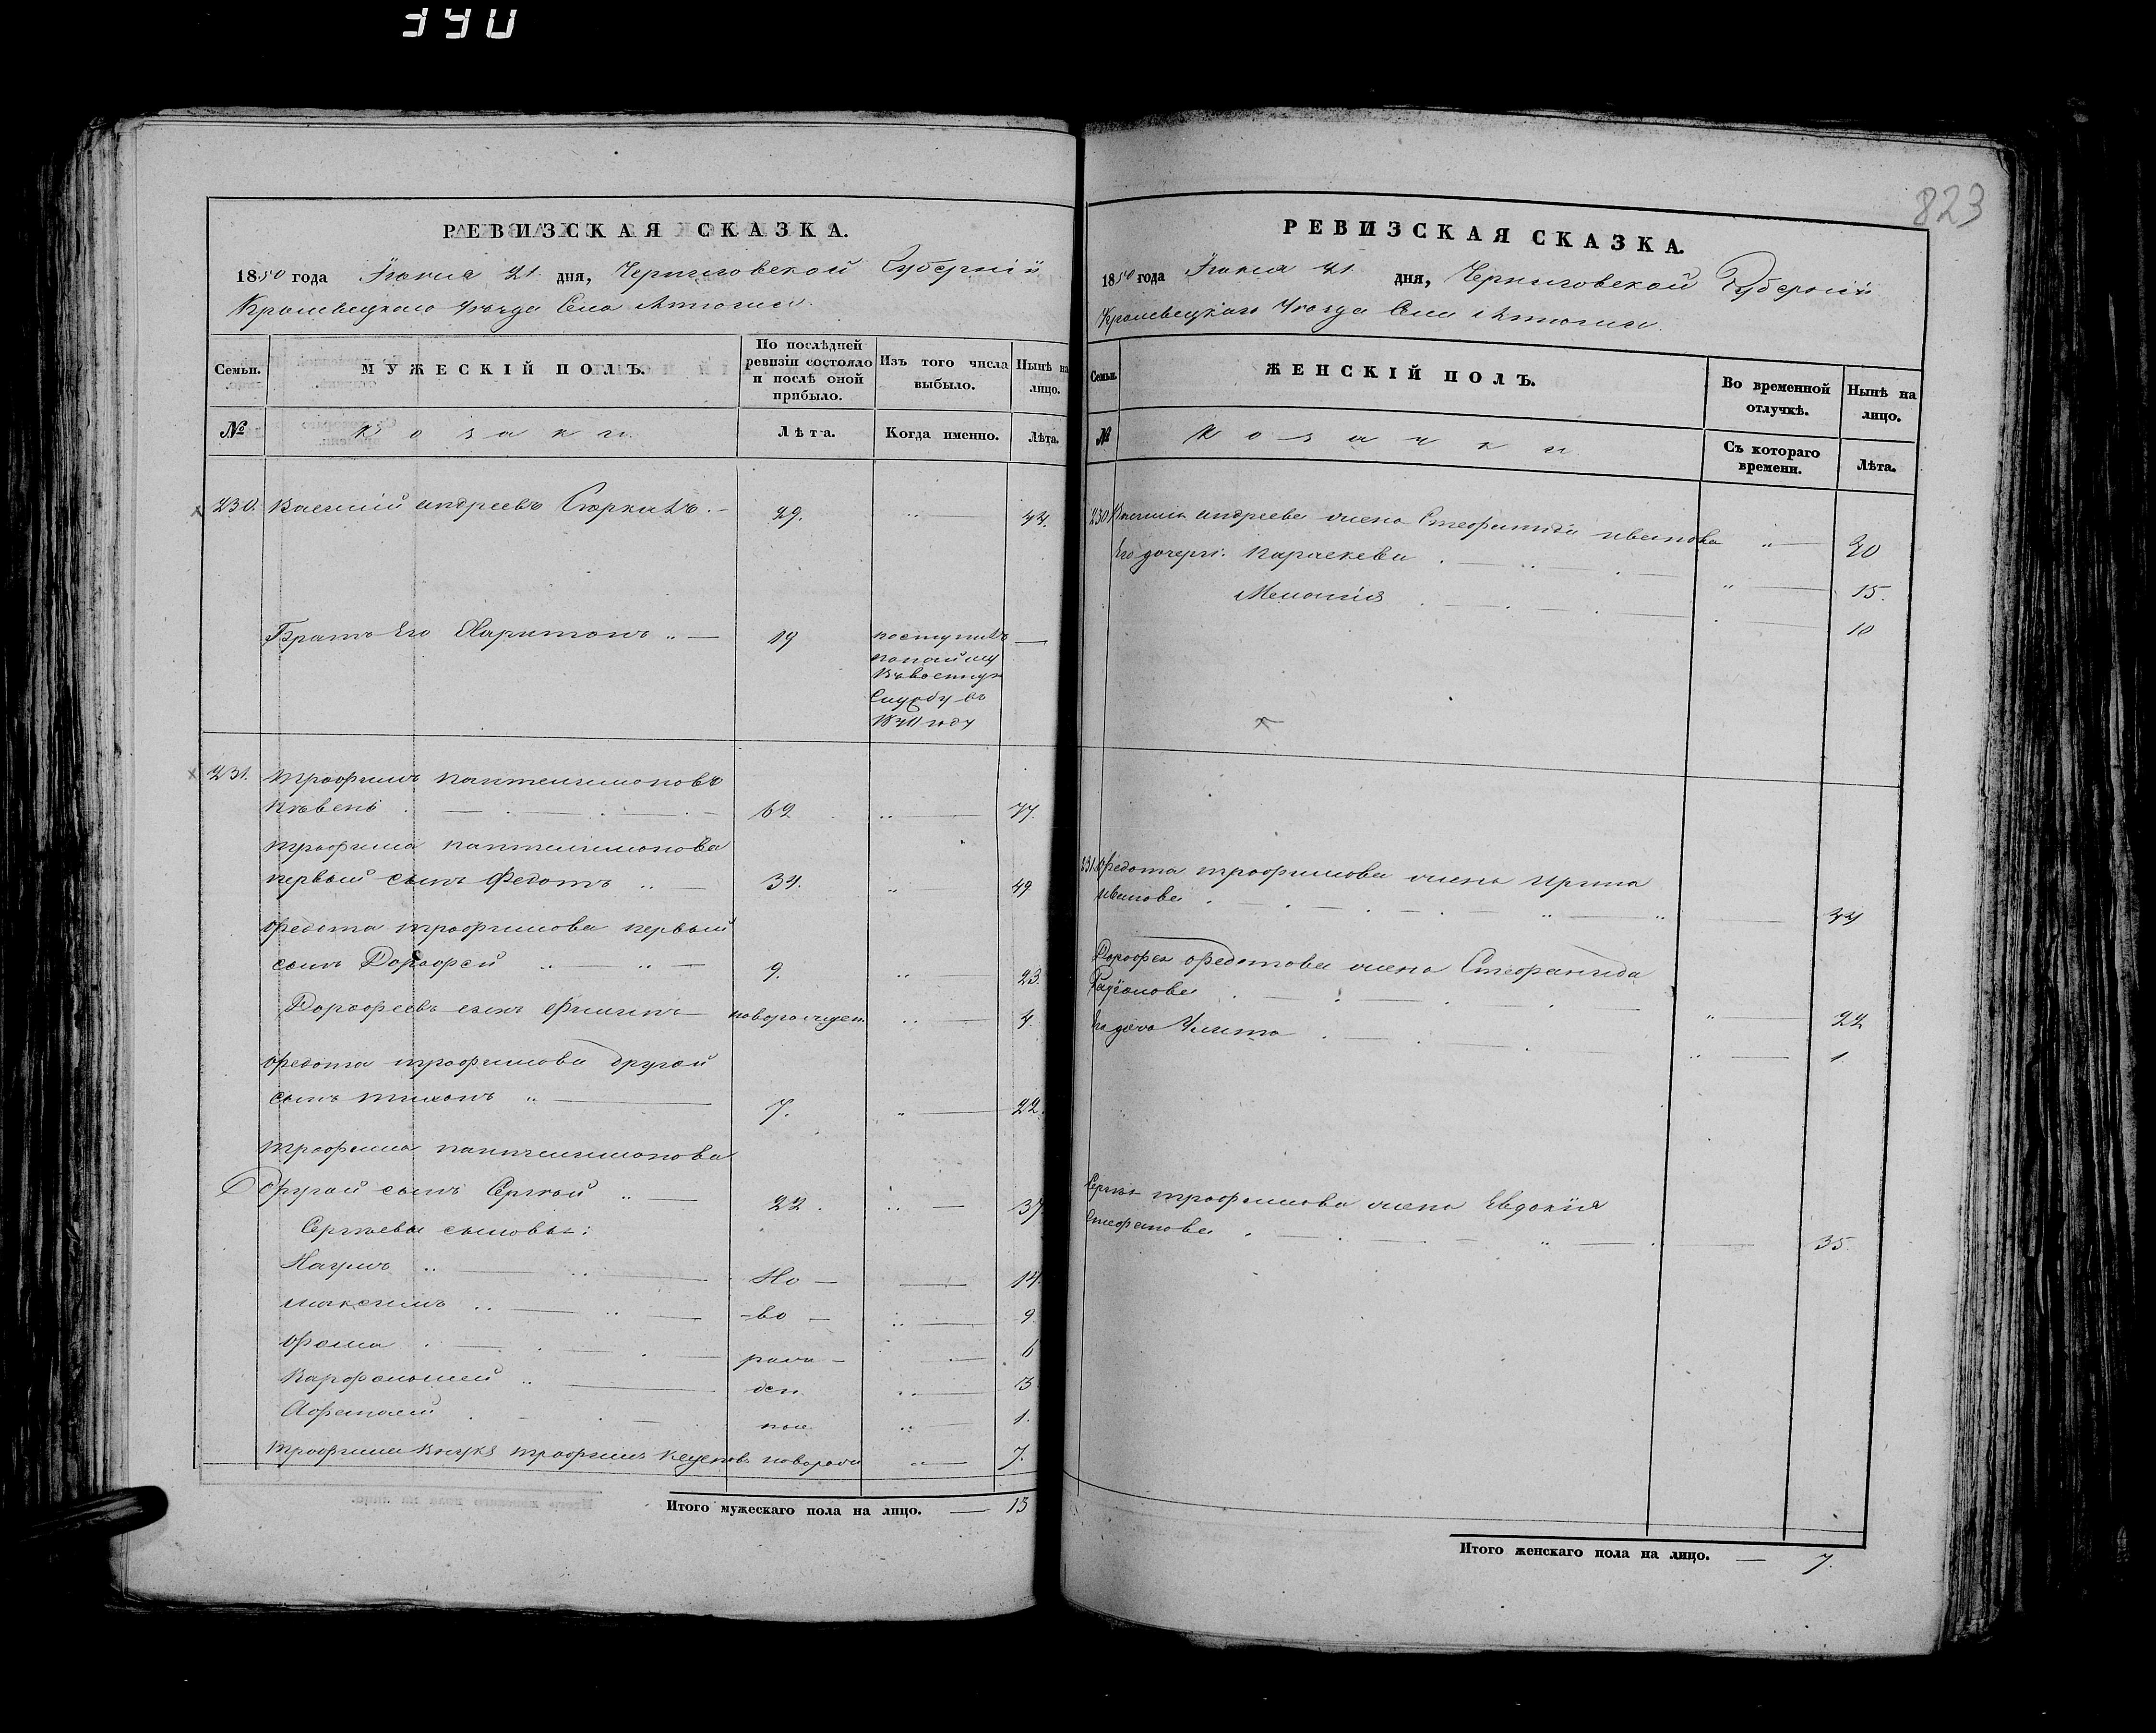 390
823
РЕВИЗСКАЯ СКАЗКА.
1850 года Іюня 21 дня, Черниговской Губерніи
Кролевецкого Уезда Села
МУЖЕСКІЙ ПОЛЪ.
Семьи.
По послѣдней ревизіи состояло и послѣ оной прибыло.
Изъ того числа выбыло.
Нынѣ на лицо.
№
Козаки
Лѣта.
Когда именно.
Лѣта.
230. Василій Андреевъ 29. 44.
Братъ Его Харитонъ 19 поступилъ
Службу въ
году
231. Трофимъ Пантелимоновъ
62 77.
Трофима Пантелимонова
первый сынъ Федотъ 34. 49
Федота Трофимова первый
сынъ Дорофей 9. 23.
Дорофеевъ сынъ Филипъ новорожден. 4.
Федота Трофимова другой
сынъ Тихонъ 7. 22.
Трофима Пантелимонова
другой сынъ Сергѣй 22. 37
Сергѣевы сыновья:
Наумъ Но 14.
Максимъ во 9
Фома рож 6
Варфоломей ден 3
1.
Трофима внукъ Трофимъ новорож 7.
Итого мужескаго пола на лицо. 13
РЕВИЗСКАЯ СКАЗКА.
1850 года Іюня 21 дня, Черниговской Губерніи
Кролевецкаго Уезда Села
ЖЕНСКІЙ ПОЛЪ.
Семьи.
Во временной отлучкѣ.
Нынѣ на лицо.
№
Козачки
Съ котораго времени.
Лѣта.
230 Василія Андреева жена Стефанида Иванова 40
Его дочери: Параскева 15.
Меланія 10
231. Федота Трофимова жена Ирина
Иванова 44
Дорофея Федотова жена Стефанида
22
Его дочь Улита 1.
Сергѣя Трофимова жена Евдокія
Стефанова 35.
Итого женскаго пола на лицо. 7.